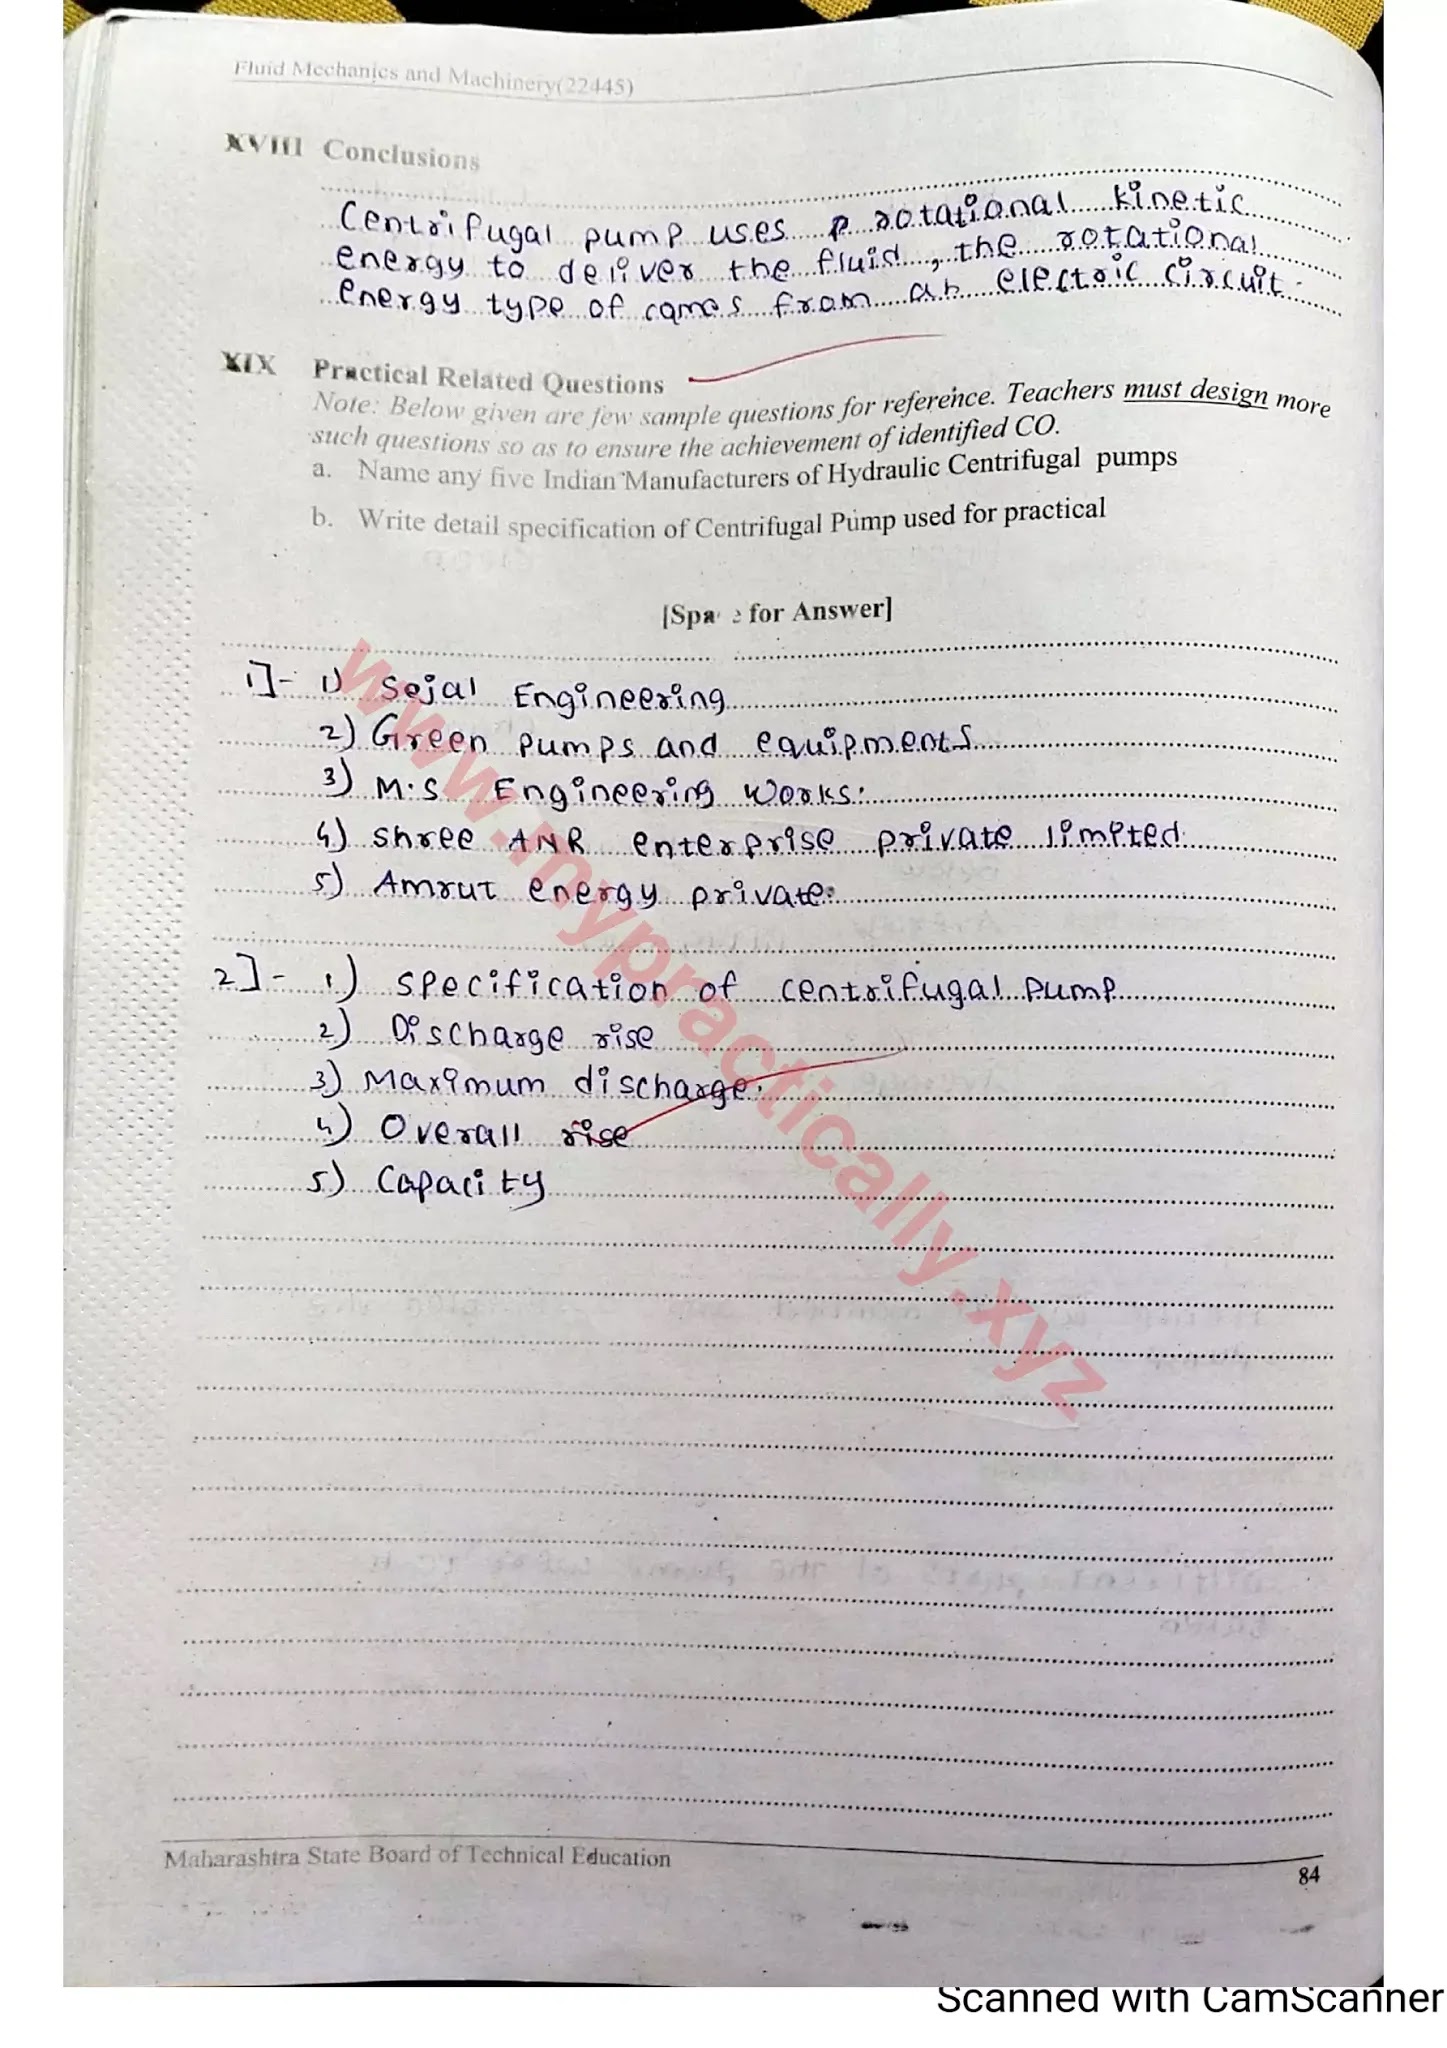 Fluid Mechanics and Machinery(22445)
XVIII Conclusions
Centrifugal pump uses rotational kinetic
energy to deliver the fluid, the rotational
energy type of comes from an electric circuit.
XIX Practical Related Questions
Note: Below given are few sample questions for reference. Teachers must design more
such questions so as to ensure the achievement of identified CO.
a. Name any five Indian Manufacturers of Hydraulic Centrifugal pumps
b. Write detail specification of Centrifugal Pump used for practical
[Space for Answer]
1]- 1) Sejal Engineering
2) Green pumps and equipments
3) M.S Engineering works.
4) Shree ANR enterprise private limited.
5) Amrut energy private.
2]- 1) Specification of centrifugal pump
2) Discharge rise
3) Maximum discharge.
4) Overall rise
5) Capacity
www.mypractically.xyz
Maharashtra State Board of Technical Education
84
Scanned with CamScanner